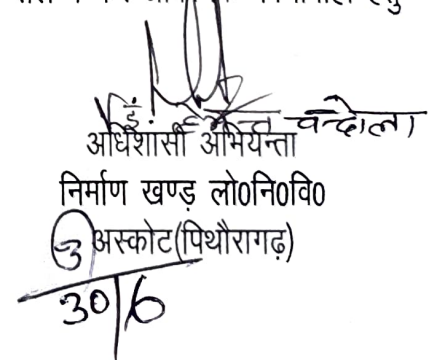 इं. चन्दोला
अधिशासी अभियन्ता
निर्माण खण्ड़ लो0नि0वि0
अस्कोट(पिथौरागढ़)
30/6